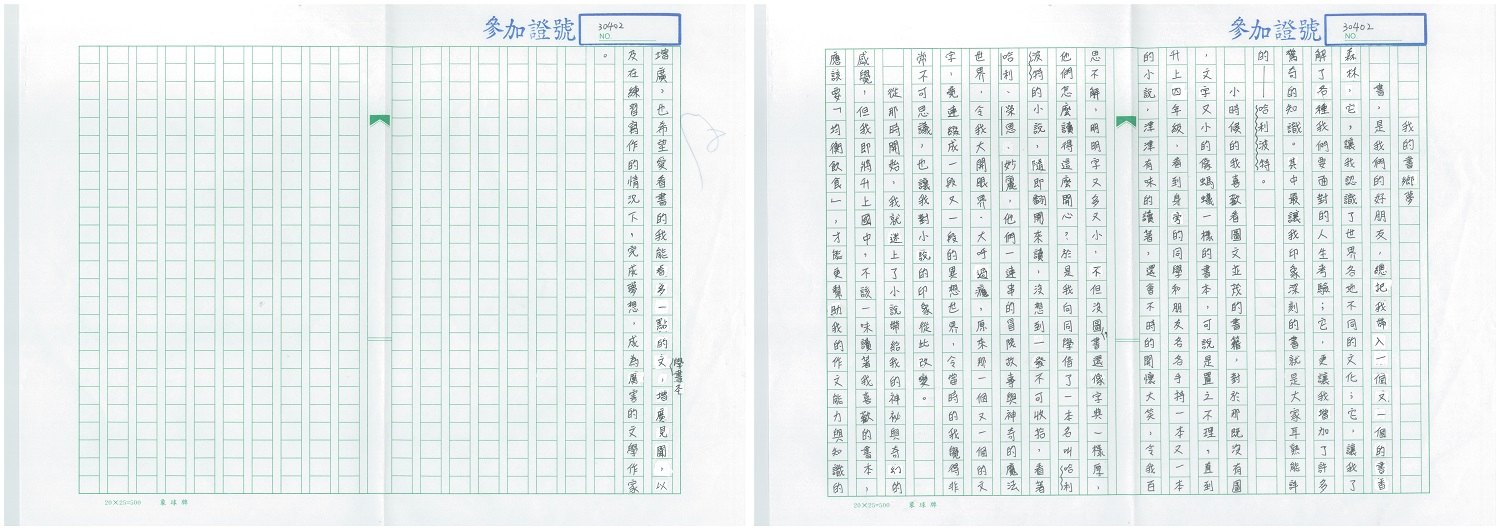 參加證號 NO. 30402
我的書鄉夢
書,是我們的好朋友,總把我帶入一個又一個的書香
森林,它,讓我認識了世界各地不同的文化;它,讓我了
解了各種我們要面對的人生考驗;它,更讓我增加了許多
驚奇的知識。其中最讓我印象深刻的書就是大家耳熟能詳
的——哈利波特。
小時候的我喜歡看圖文並茂的書籍,對於那既沒有圖
,文字又小的像螞蟻一樣的書本,可說是置之不理,直到
升上四年級,看到身旁的同學和朋友名名手持一本又一本
的小說,津津有味的讀著,還會不時的開懷大笑,令我百
思不解,明明字又多又小,不但沒圖,書還像字典一樣厚,
他們怎麼讀得這麼開心?於是我向同學借了一本名叫哈利
波特的小說,隨即翻開來讀,沒想到一發不可收拾,看著
哈利、榮恩、妙麗,他們一連串的冒險故事與神奇的魔法
世界,令我大開眼界、大呼過癮,原來那一個又一個的文
字,竟連設成一段又一段的異想世界,令當時的我覺得非
常不可思議,也讓我對小說的印象從此改變。
從那時開始,我就迷上了小說帶給我的神祕與奇幻的
感覺,但我即將升上國中,不該一味讀著我喜歡的書本,
應該要「均衡飲食」,才能更幫助我的作文能力與知識的
20×25=500 星球牌
參加證號 NO. 30402
增廣,也希望愛看書的我能看多一點的文學書本,增廣見聞,以
及在練習寫作的情況下,完成夢想,成為厲害的文學作家
。
20×25=500 星球牌